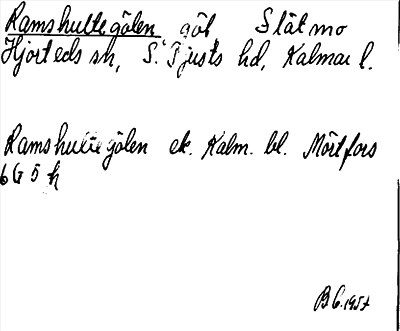 Ramshultegölen göl Slätmo
Hjorteds sn, S. Tjusts hd, Kalmar l.
Ramshultegölen ek. Kalm. bl. Mörtfors
6G 5h
B.G. 1957